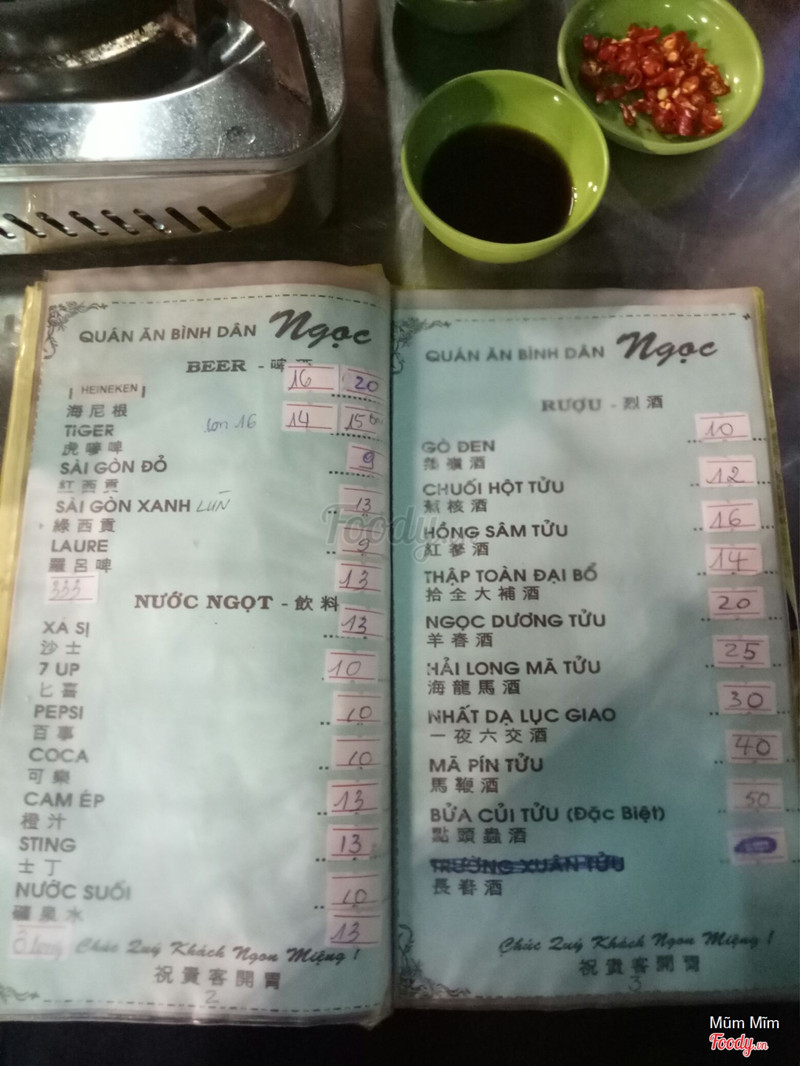 QUÁN ĂN BÌNH DÂN Ngọc
BEER - 啤酒
HEINEKEN 16 20
海尼根
TIGER lon 16 14 15
虎嘜啤
SÀI GÒN ĐỎ 9
紅西貢
SÀI GÒN XANH LÙN 13
綠西貢
LAURE 9
羅呂啤
333 13
NƯỚC NGỌT - 飲料
XÁ SỊ 13
沙士
7 UP 10
七喜
PEPSI 10
百事
COCA 10
可樂
CAM ÉP 13
橙汁
STING 13
士丁
NƯỚC SUỐI 10
礦泉水
13
Chúc Quý Khách Ngon Miệng !
祝貴客開胃
2
QUÁN ĂN BÌNH DÂN Ngọc
RƯỢU - 烈酒
GÒ ĐEN 10
酒
CHUỐI HỘT TỬU 12
核酒
HỒNG SÂM TỬU 16
紅蔘酒
THẬP TOÀN ĐẠI BỔ 14
拾全大補酒
NGỌC DƯƠNG TỬU 20
羊春酒
HẢI LONG MÃ TỬU 25
海龍馬酒
NHẤT DẠ LỤC GIAO 30
一夜六交酒
MÃ PÍN TỬU 40
馬鞭酒
BỬA CỦI TỬU (Đặc Biệt) 50
點頭蟲酒
TRƯỜNG XUÂN TỬU
長春酒
Chúc Quý Khách Ngon Miệng !
祝貴客開胃
3
Foody
Mũm Mĩm
Foody.vn